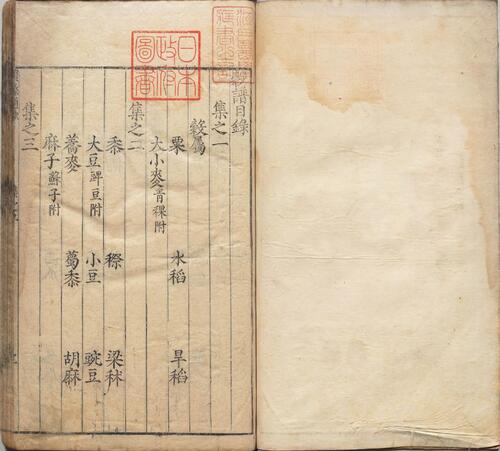 日本
政府
圖書
穀譜目錄
集之一
穀屬
粟 水稻 旱稻
大小麥青稞附
集之二
黍 穄 梁秫
大豆豍豆附 小豆 豌豆
蕎麥 薥黍 胡麻
麻子蘇子附
集之三